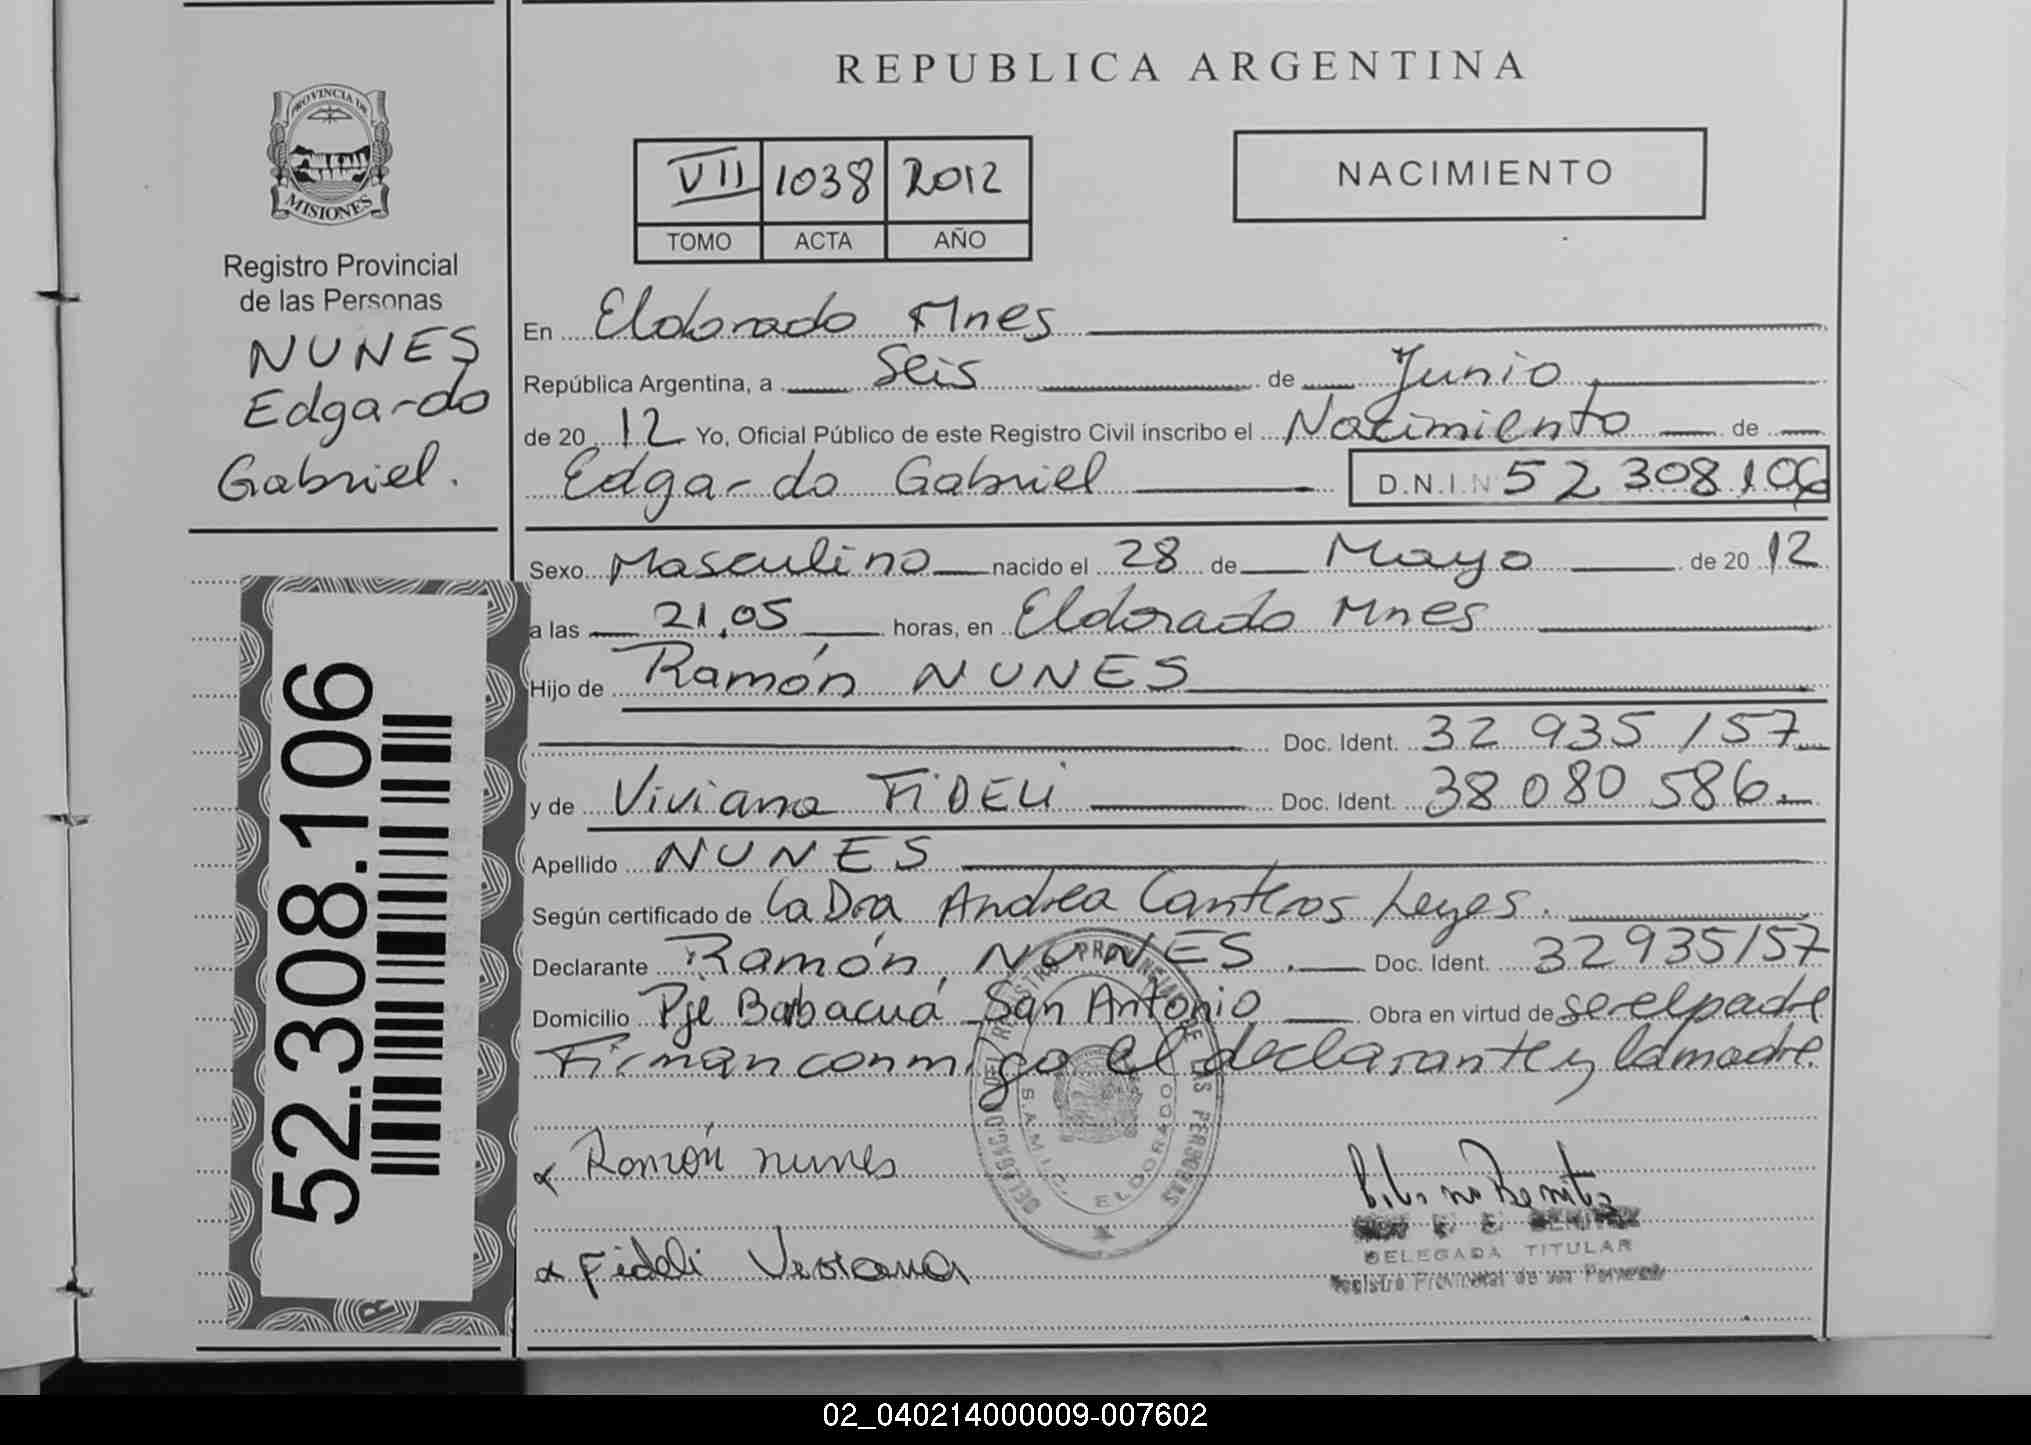 REPUBLICA ARGENTINA
PROVINCIA DE
MISIONES
Registro Provincial
de las Personas
NUNES
Edgardo
Gabriel.
VII 1038 2012
TOMO ACTA AÑO
NACIMIENTO
En Eldorado Mnes
República Argentina, a Seis de Junio
de 2012 Yo, Oficial Público de este Registro Civil inscribo el Nacimiento de
Edgardo Gabriel D.N.I.N 52 308 106
Sexo Masculino nacido el 28 de Mayo de 2012
a las 21,05 horas, en Eldorado Mnes
Hijo de Ramón NUNES
Doc. Ident. 32 935 157
y de Viviana FiDELi Doc. Ident. 38 080 586
Apellido NUNES
Según certificado de la Dra Andrea Canteros Leyes.
Declarante Ramón NUNES. Doc. Ident. 32935157
Domicilio Pje Barbacuá San Antonio Obra en virtud de ser el padre
Firman conmigo el declarante y la madre.
Ramón nunes
Fideli Viviana
DELEGACIÓN DEL REGISTRO PROVINCIAL DE LAS PERSONAS
S.A.M.I.C. ELDORADO
Benitez
BENITEZ
DELEGADA TITULAR
Registro Provincial de las Personas
52.308.106
02_040214000009-007602